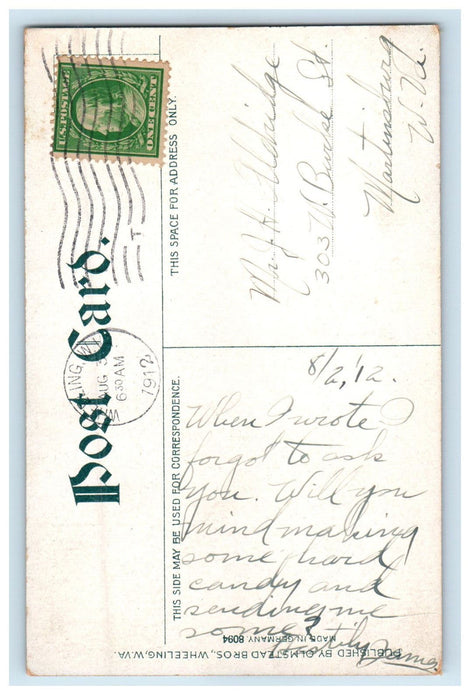 U.S. POSTAGE
ONE CENT
Post Card.
WHEELING, W.
AUG 3
6 30 AM
1912
T
THIS SPACE FOR ADDRESS ONLY.
Mr J. H. Aldridge
303 W. Burke St.
Martinsburg
W. Va.
THIS SIDE MAY BE USED FOR CORRESPONDENCE.
8/2, '12.
When I wrote I
forgot to ask
you. Will you
mind making
some hard
candy and
sending me
some?
Hastily James
PUBLISHED BY OLMSTEAD BROS., WHEELING, W.VA.
MADE IN GERMANY 8094